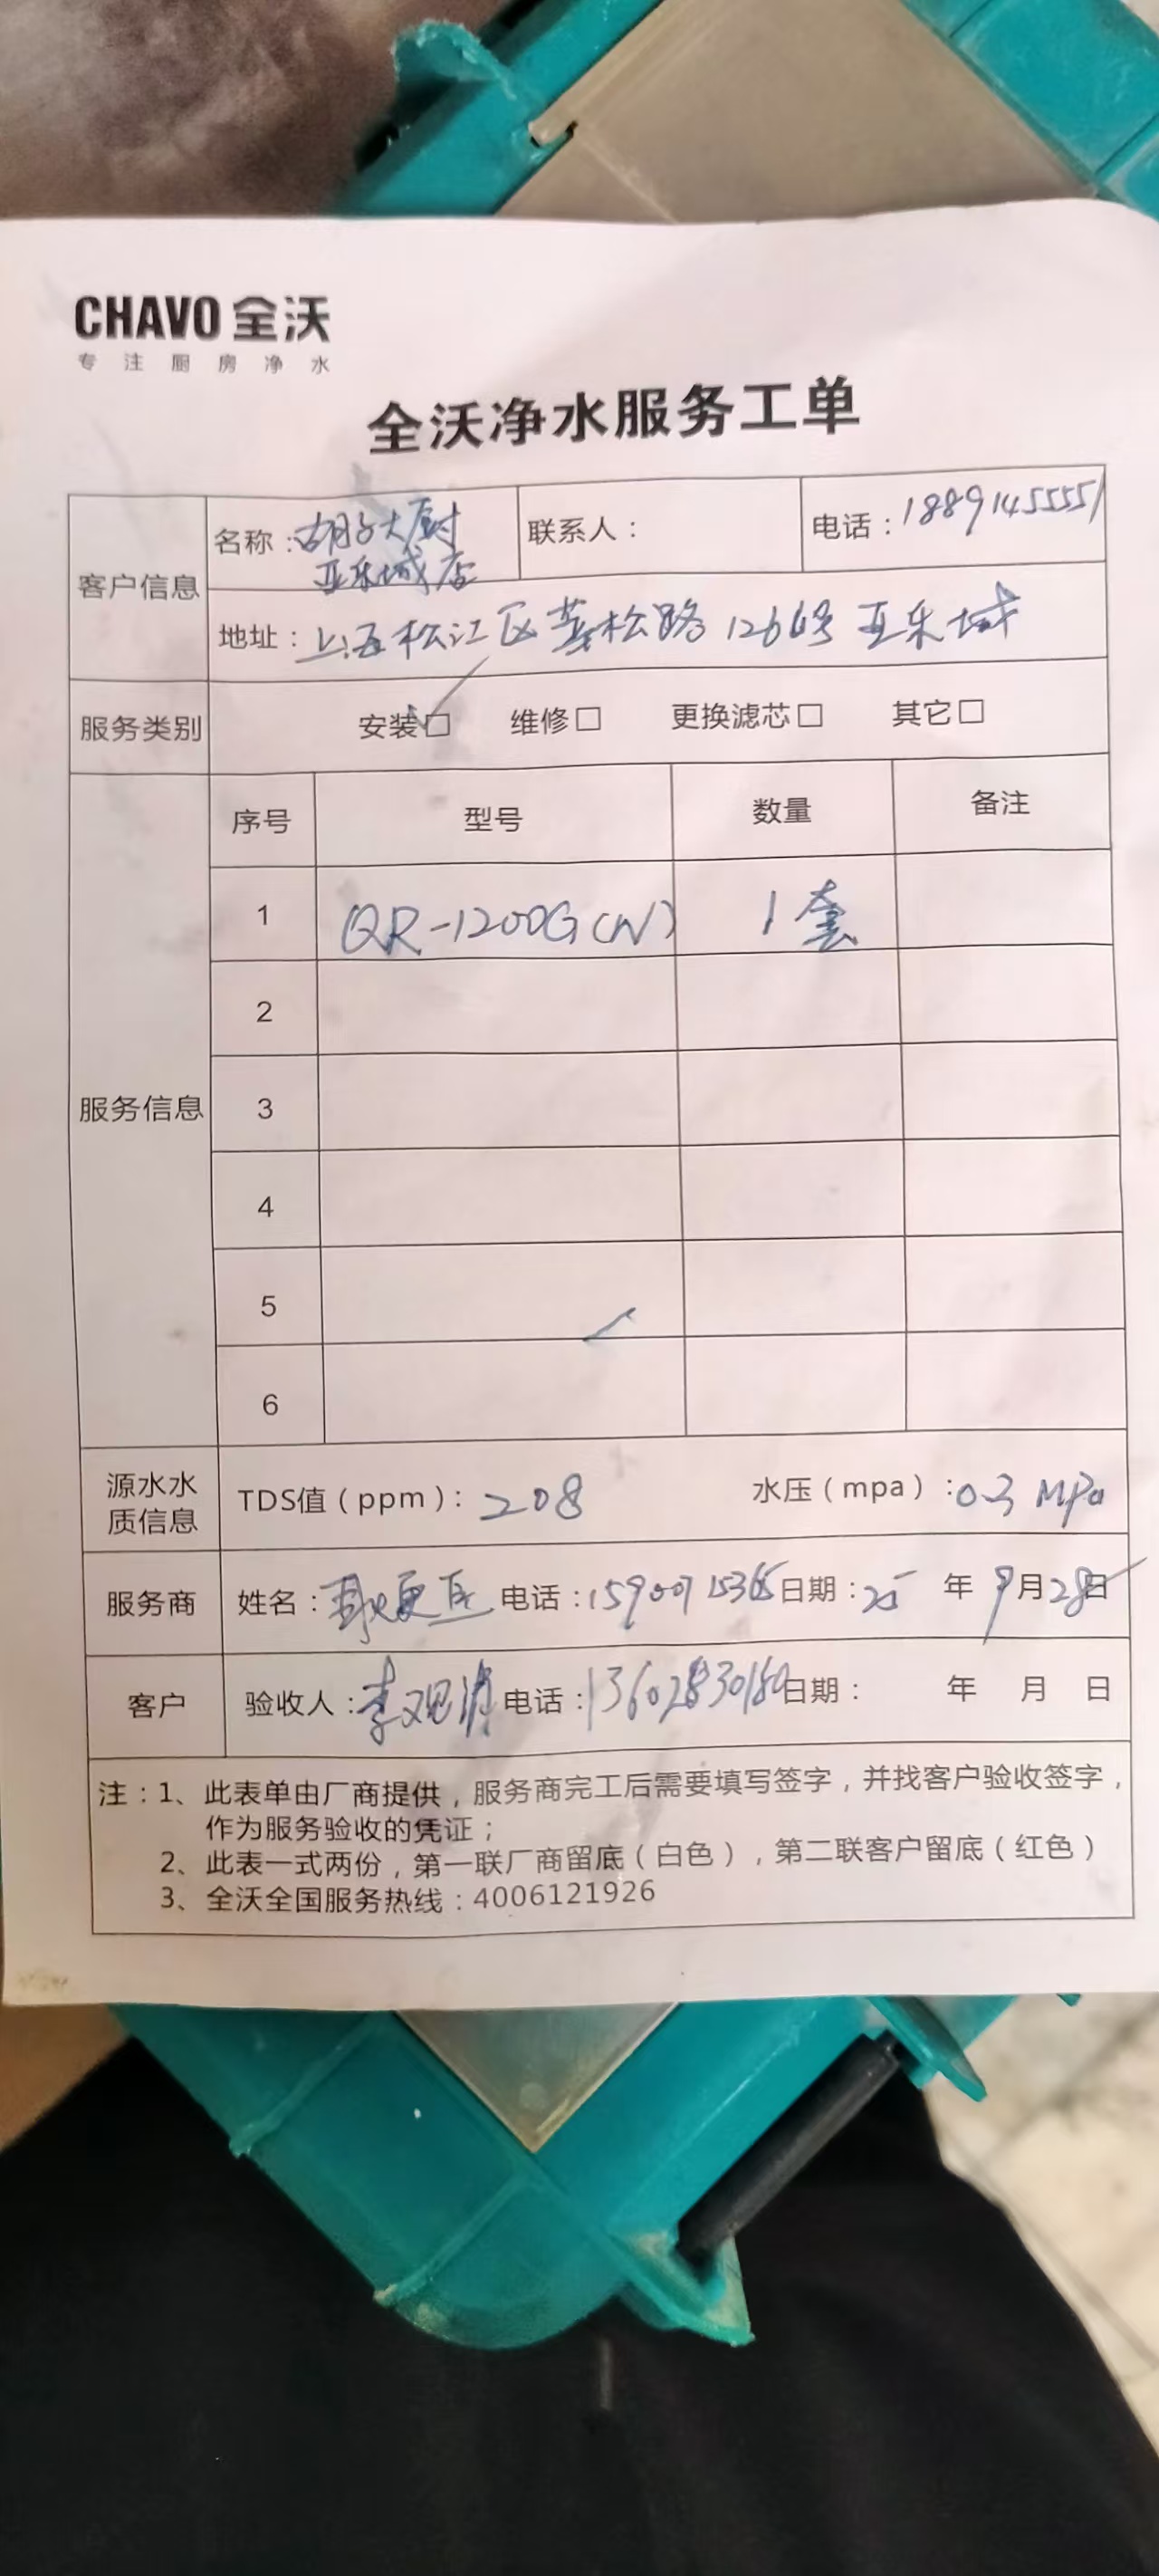 CHAVO 全沃
专注厨房净水
全沃净水服务工单
客户信息
名称：胡子大厨
亚乐城店
联系人：
电话：18891455551
地址：上海松江区莘松路1266号 亚乐城
服务类别
安装☑ 维修□ 更换滤芯□ 其它□
服务信息
序号 型号 数量 备注
1 QR-1200G(W) 1套
2
3
4
5
6
源水水质信息
TDS值（ppm）：208 水压（mpa）：0.3 MPa
服务商
姓名： 电话：15900715365 日期：25年9月28日
客户
验收人：李观清 电话：13602830180 日期： 年 月 日
注：1、此表单由厂商提供，服务商完工后需要填写签字，并找客户验收签字，
作为服务验收的凭证；
2、此表一式两份，第一联厂商留底（白色），第二联客户留底（红色）
3、全沃全国服务热线：4006121926